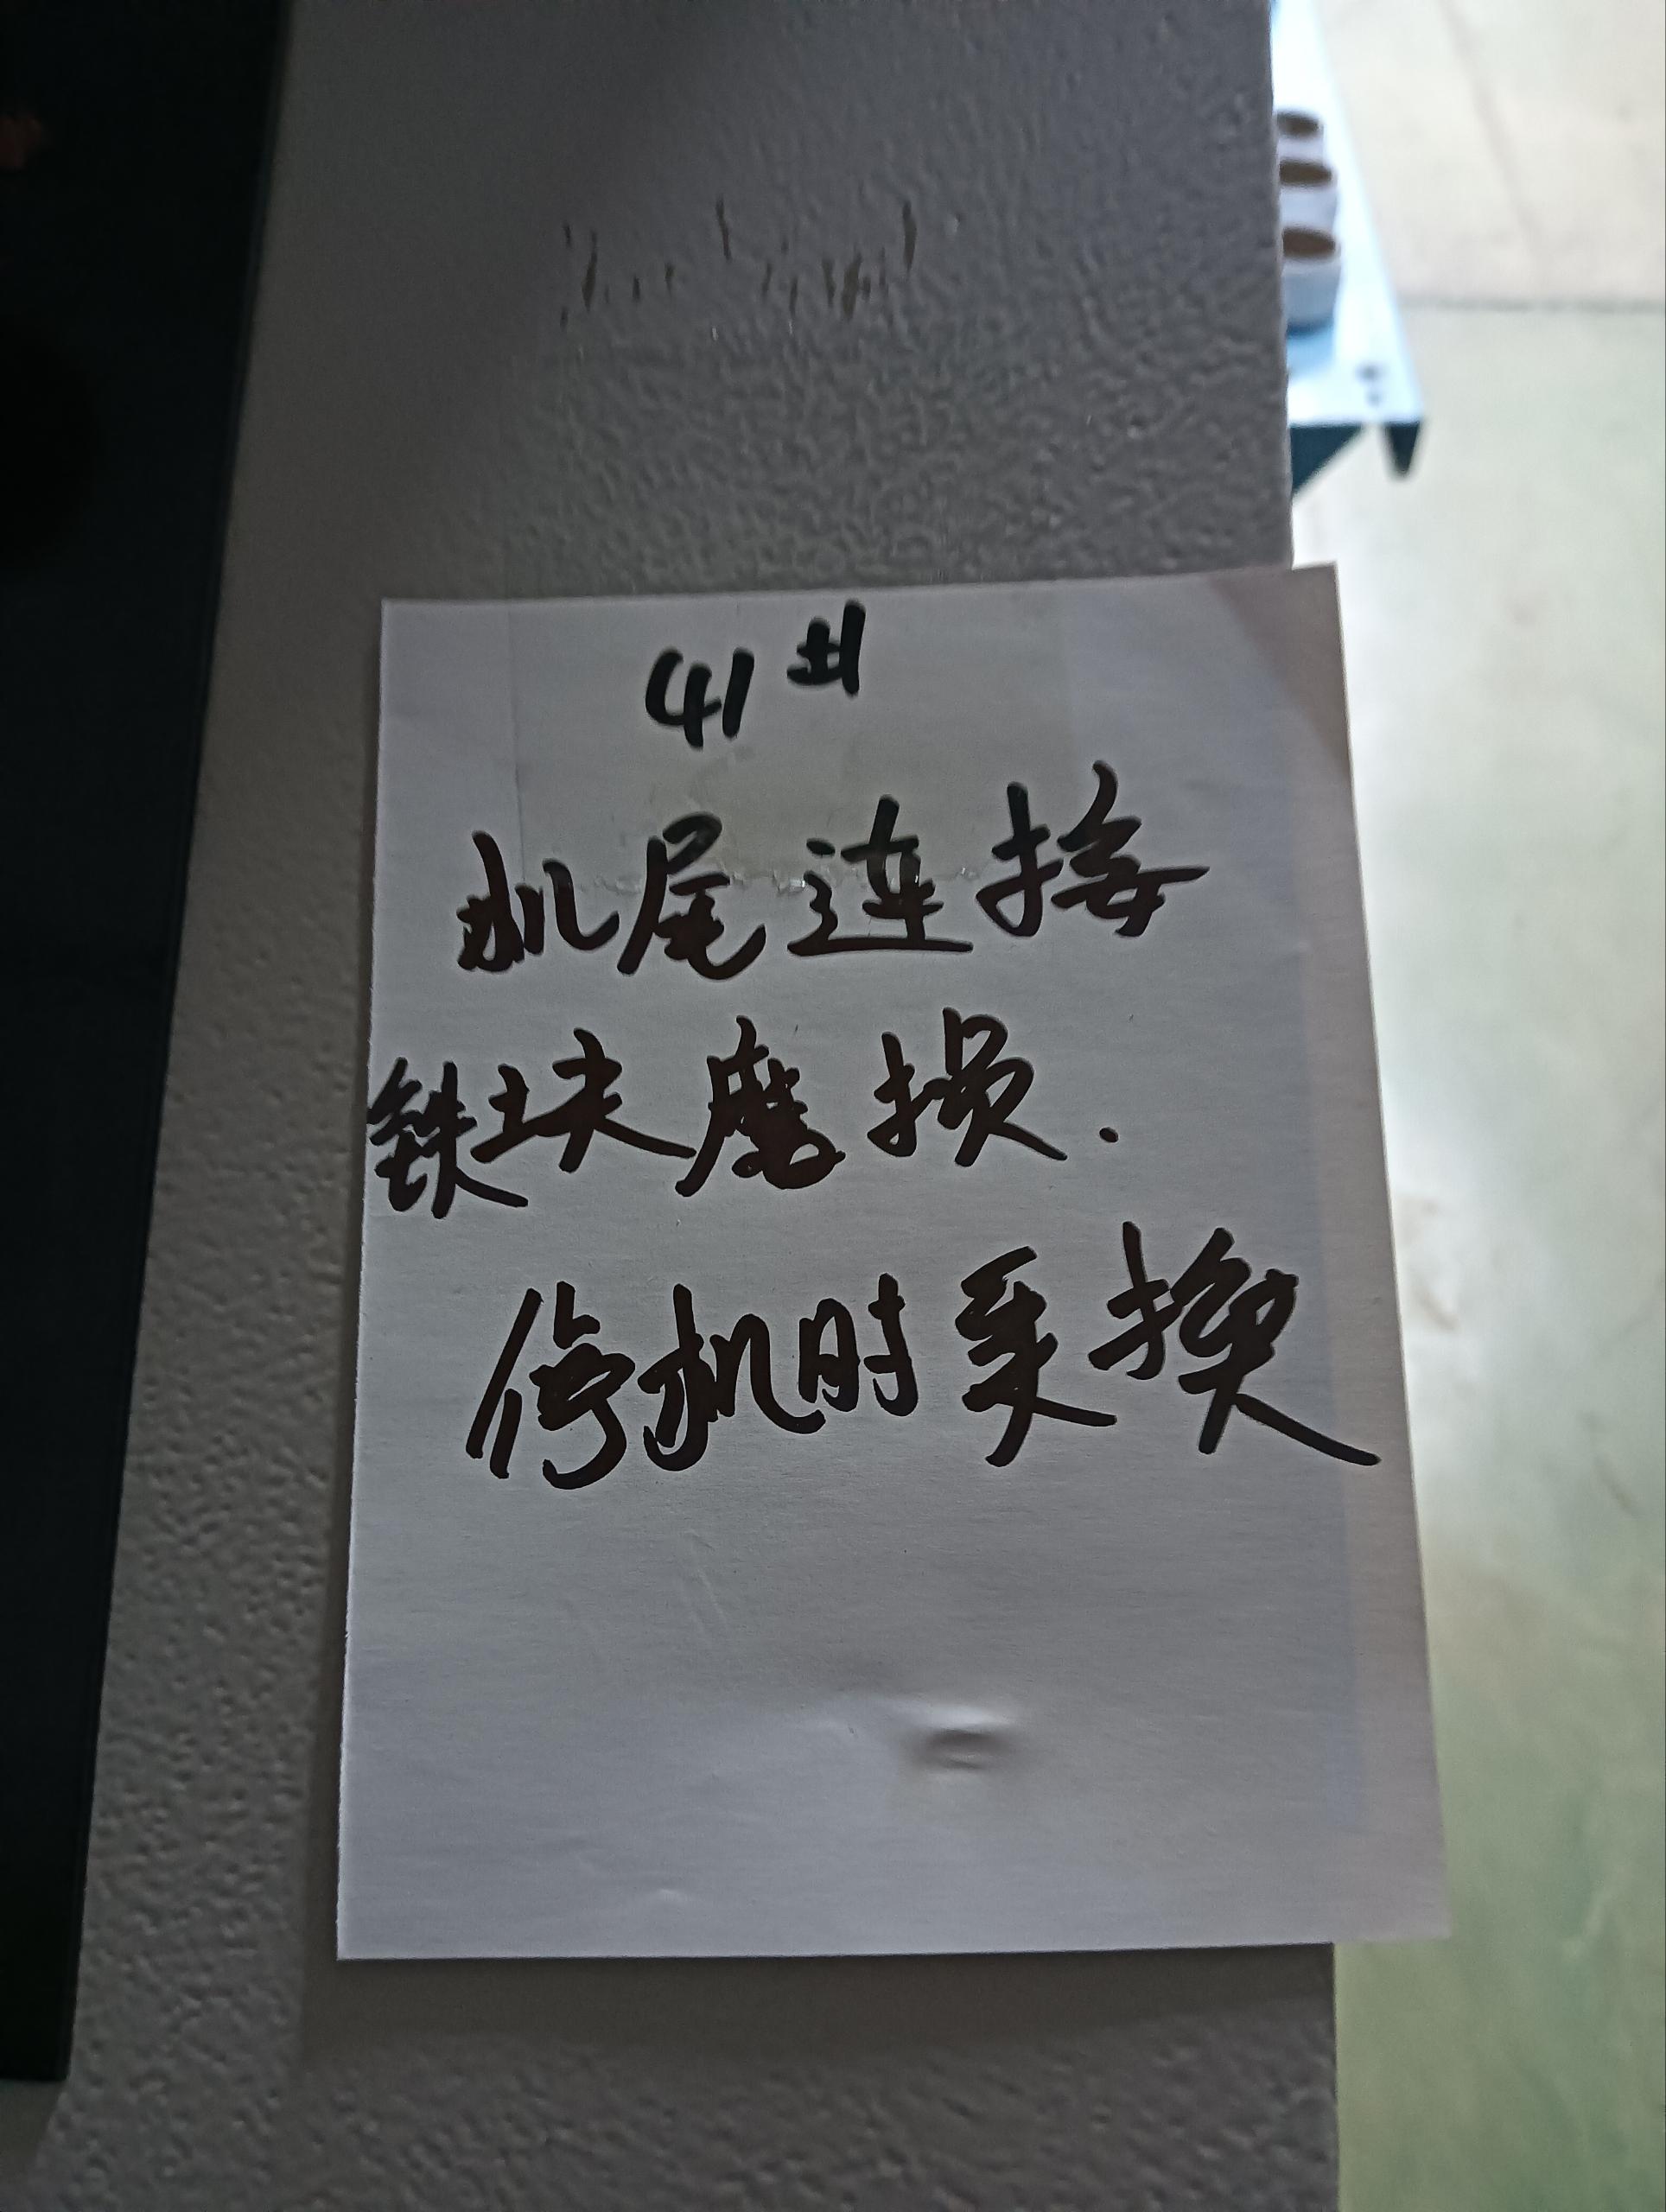 41#
机尾连接
铁块磨损.
停机时更换